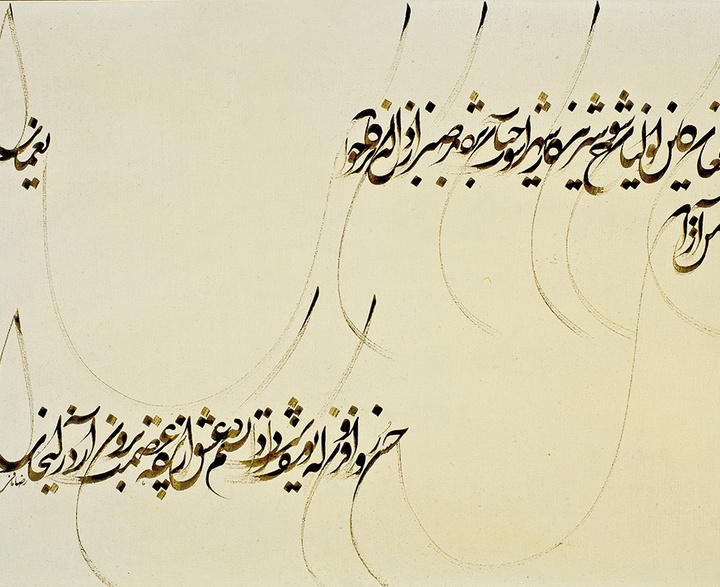 فغان کاین لولیان شوخ شیرین کار شهرآشوب چنان بردند صبر از دل که ترکان خوان یغما را
من از آن
حسن روز افزون که یوسف داشت دانستم که عشق از پرده عصمت برون آرد زلیخا را